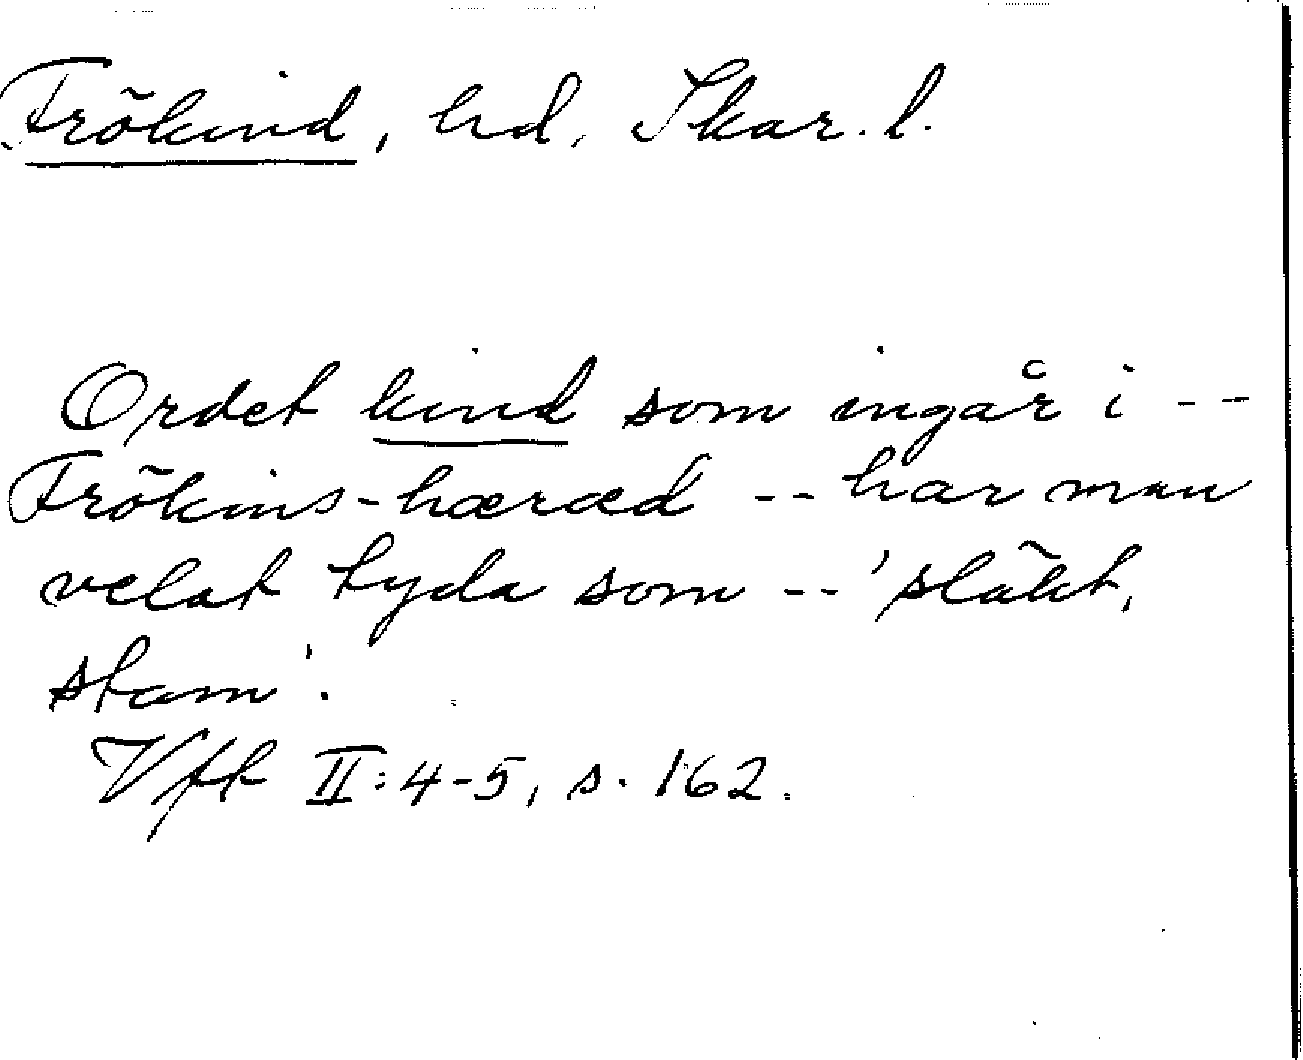 Frökind, hd, Skar. l.
Ordet kind som ingår i - -
Frökins-hæræd -- har man
velat tyda som -- 'släkt,
stam'.
Vfk II: 4-5, s. 162.